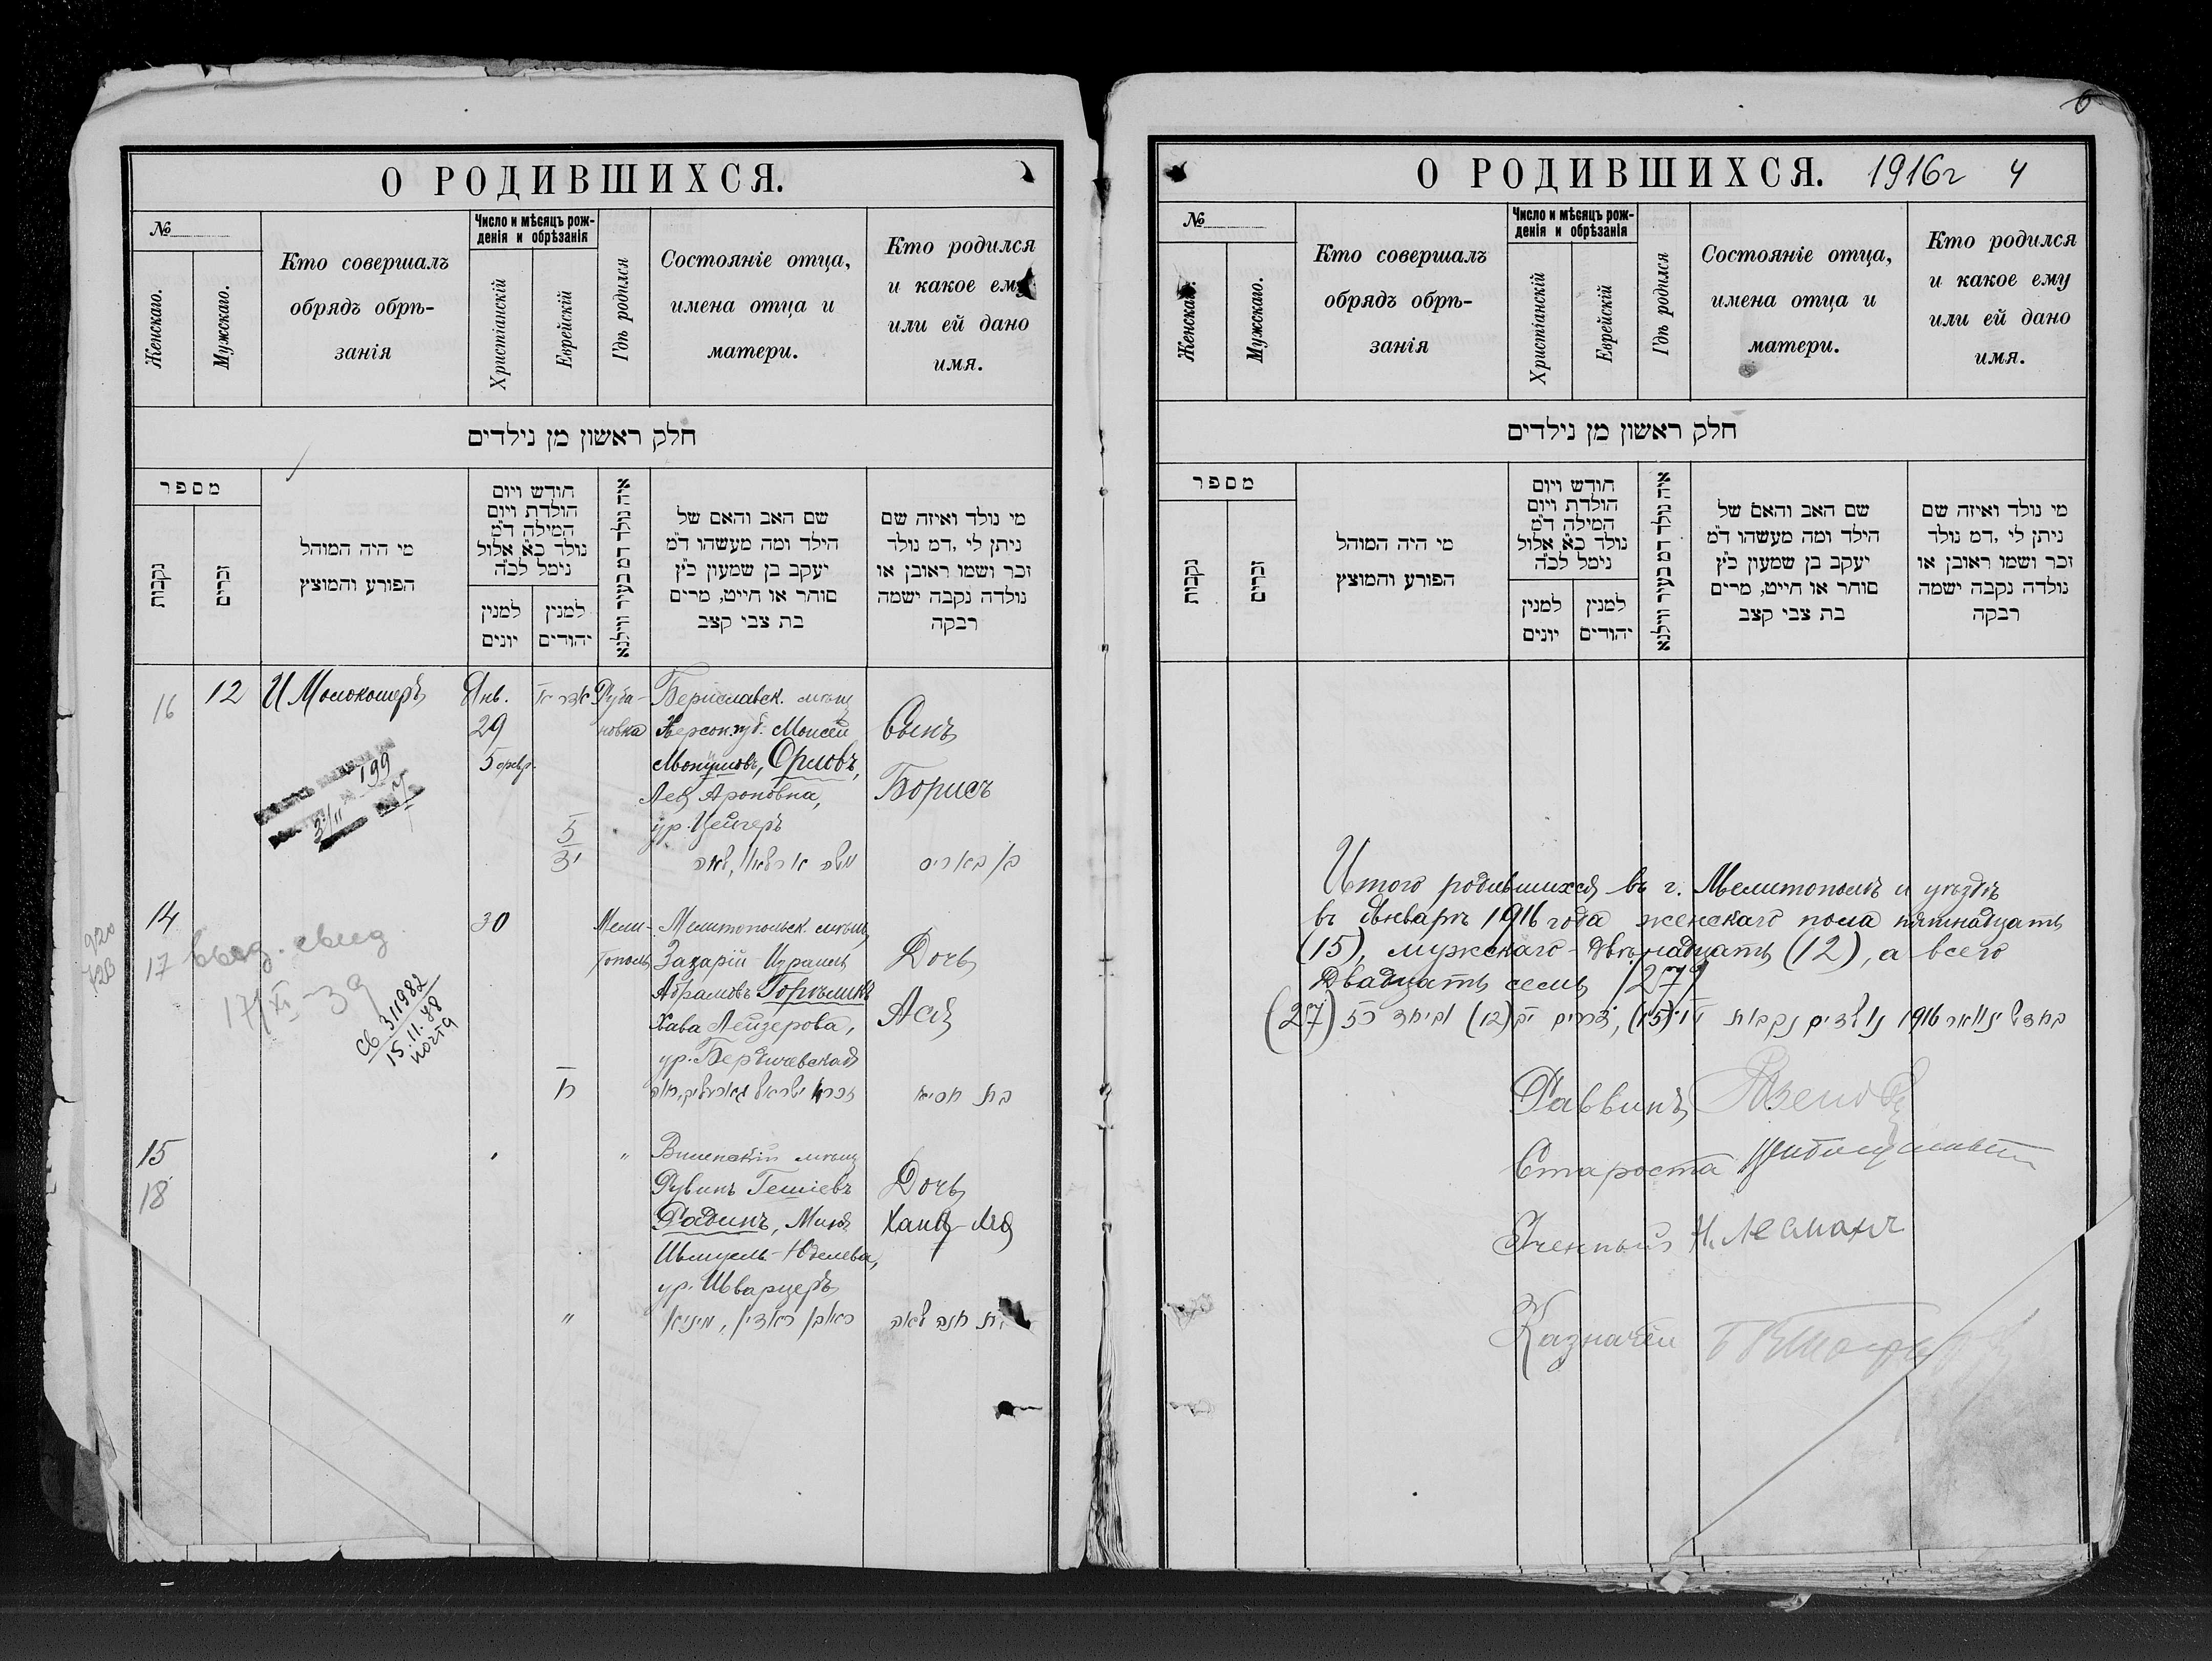 О РОДИВШИХСЯ.
№
Женскаго.
Мужскаго.
Кто совершалъ
обрядъ обрѣ-
занія
Число и мѣсяцъ рож-
денія и обрѣзанія
Христіанскій
Еврейскій
Гдѣ родился
Состояніе отца,
имена отца и
матери.
Кто родился
и какое ему
или ей дано
имя.
חלק ראשון מן נילדים
מספר
נקבות
זכרים
מי היה המוהל
הפורע והמוצץ
חודש ויום
הולדת ויום
המילה ד״מ
נולד כ״א אלול
נימל לכ״ה
למנין
יונים
למנין
יהודים
איה נולד דמ בעיר ווילנא
שם האב והאם של
הילד ומה מעשהו ד״מ
יעקב בן שמעון כ״ץ
סוחר או חייט, מרים
בת צבי קצב
מי נולד ואיזה שם
ניתן לי, דמ נולד
זכר ושמו ראובן או
נולדה נקבה ישמה
רבקה
16
12
И Молокомеръ
Янв.
29
5 февр.
Руба-
новка
Бериславск. мѣщ
Херсон. губ. Моисей
Орловъ,
Лея Ароновна,
ур. Цейгеръ
Сынъ
Борисъ
199
3/II
5
14
17
920
выд. свид
17/XI-39
Св 311982
15.11.48
почта
30
Мели-
тополь
Мелитопольск. мѣщ,
Захарій-Израиль
Абрамовъ Горѣликъ
Хава Лейзерова,
ур. Бердичевская
Дочь
Ася
ח
בת אסיא
15
18
"
Виленскій мѣщ
Рувинъ Гешіевъ
Радинъ, Миня
Шмуель-Юделева,
ур. Шварцеръ
Дочь
Хана-Лея
"
ראובן ראדין, מיניא
בת חנה לאה
О РОДИВШИХСЯ. 1916г 4
6
№
Женскаго.
Мужскаго.
Кто совершалъ
обрядъ обрѣ-
занія
Число и мѣсяцъ рож-
денія и обрѣзанія
Христіанскій
Еврейскій
Гдѣ родился
Состояніе отца,
имена отца и
матери.
Кто родился
и какое ему
или ей дано
имя.
חלק ראשון מן נילדים
מספר
נקבות
זכרים
מי היה המוהל
הפורע והמוצץ
חודש ויום
הולדת ויום
המילה ד״מ
נולד כ״א אלול
נימל לכ״ה
למנין
יונים
למנין
יהודים
איה נולד דמ בעיר ווילנא
שם האב והאם של
הילד ומה מעשהו ד״מ
יעקב בן שמעון כ״ץ
סוחר או חייט, מרים
בת צבי קצב
מי נולד ואיזה שם
ניתן לי, דמ נולד
זכר ושמו ראובן או
נולדה נקבה ישמה
רבקה
Итого родившихся въ г. Мелитополѣ и уѣздѣ
въ Январѣ 1916 года женскаго пола пятнадцать
(15), мужскаго - двѣнадцать (12), а всего
двадцать семь (27)
בחדש ינואר 1916 נולדים נקבות ט״ו (15), זכרים יב (12) וביחד כז (27)
Раввинъ
Староста
Ученый Н. Леманъ
Казначей